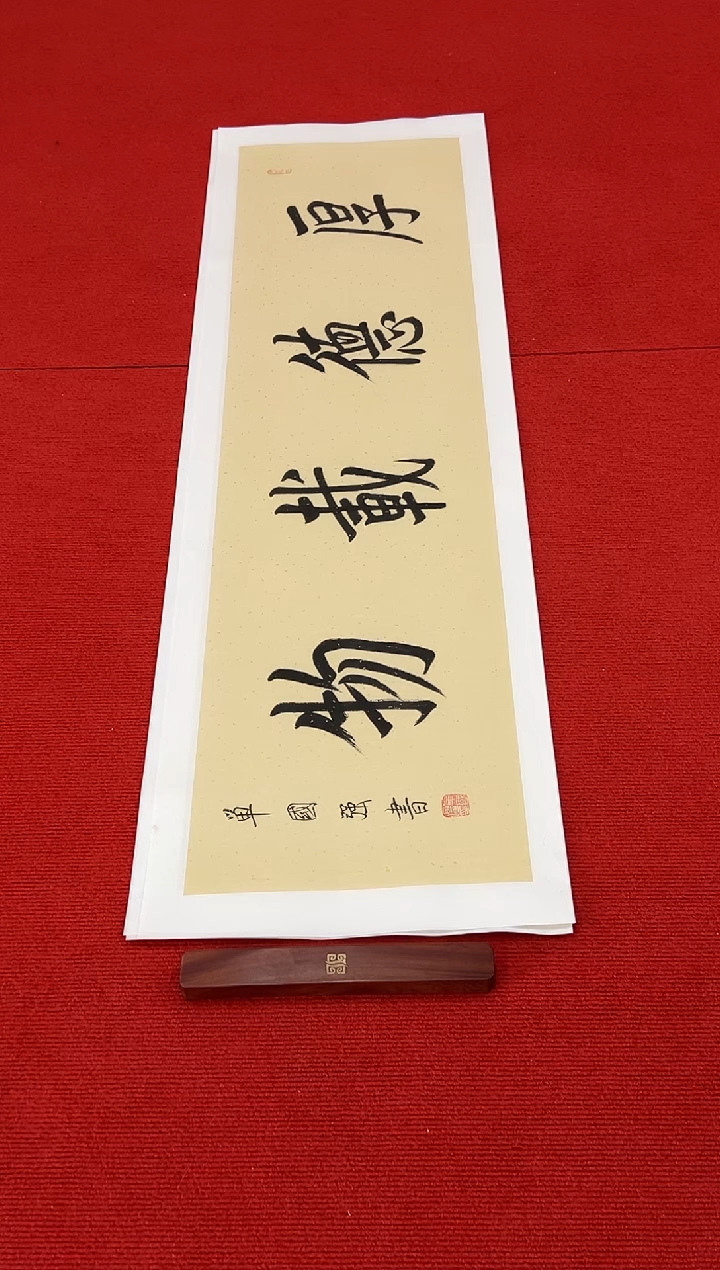 厚德載物
単國强書